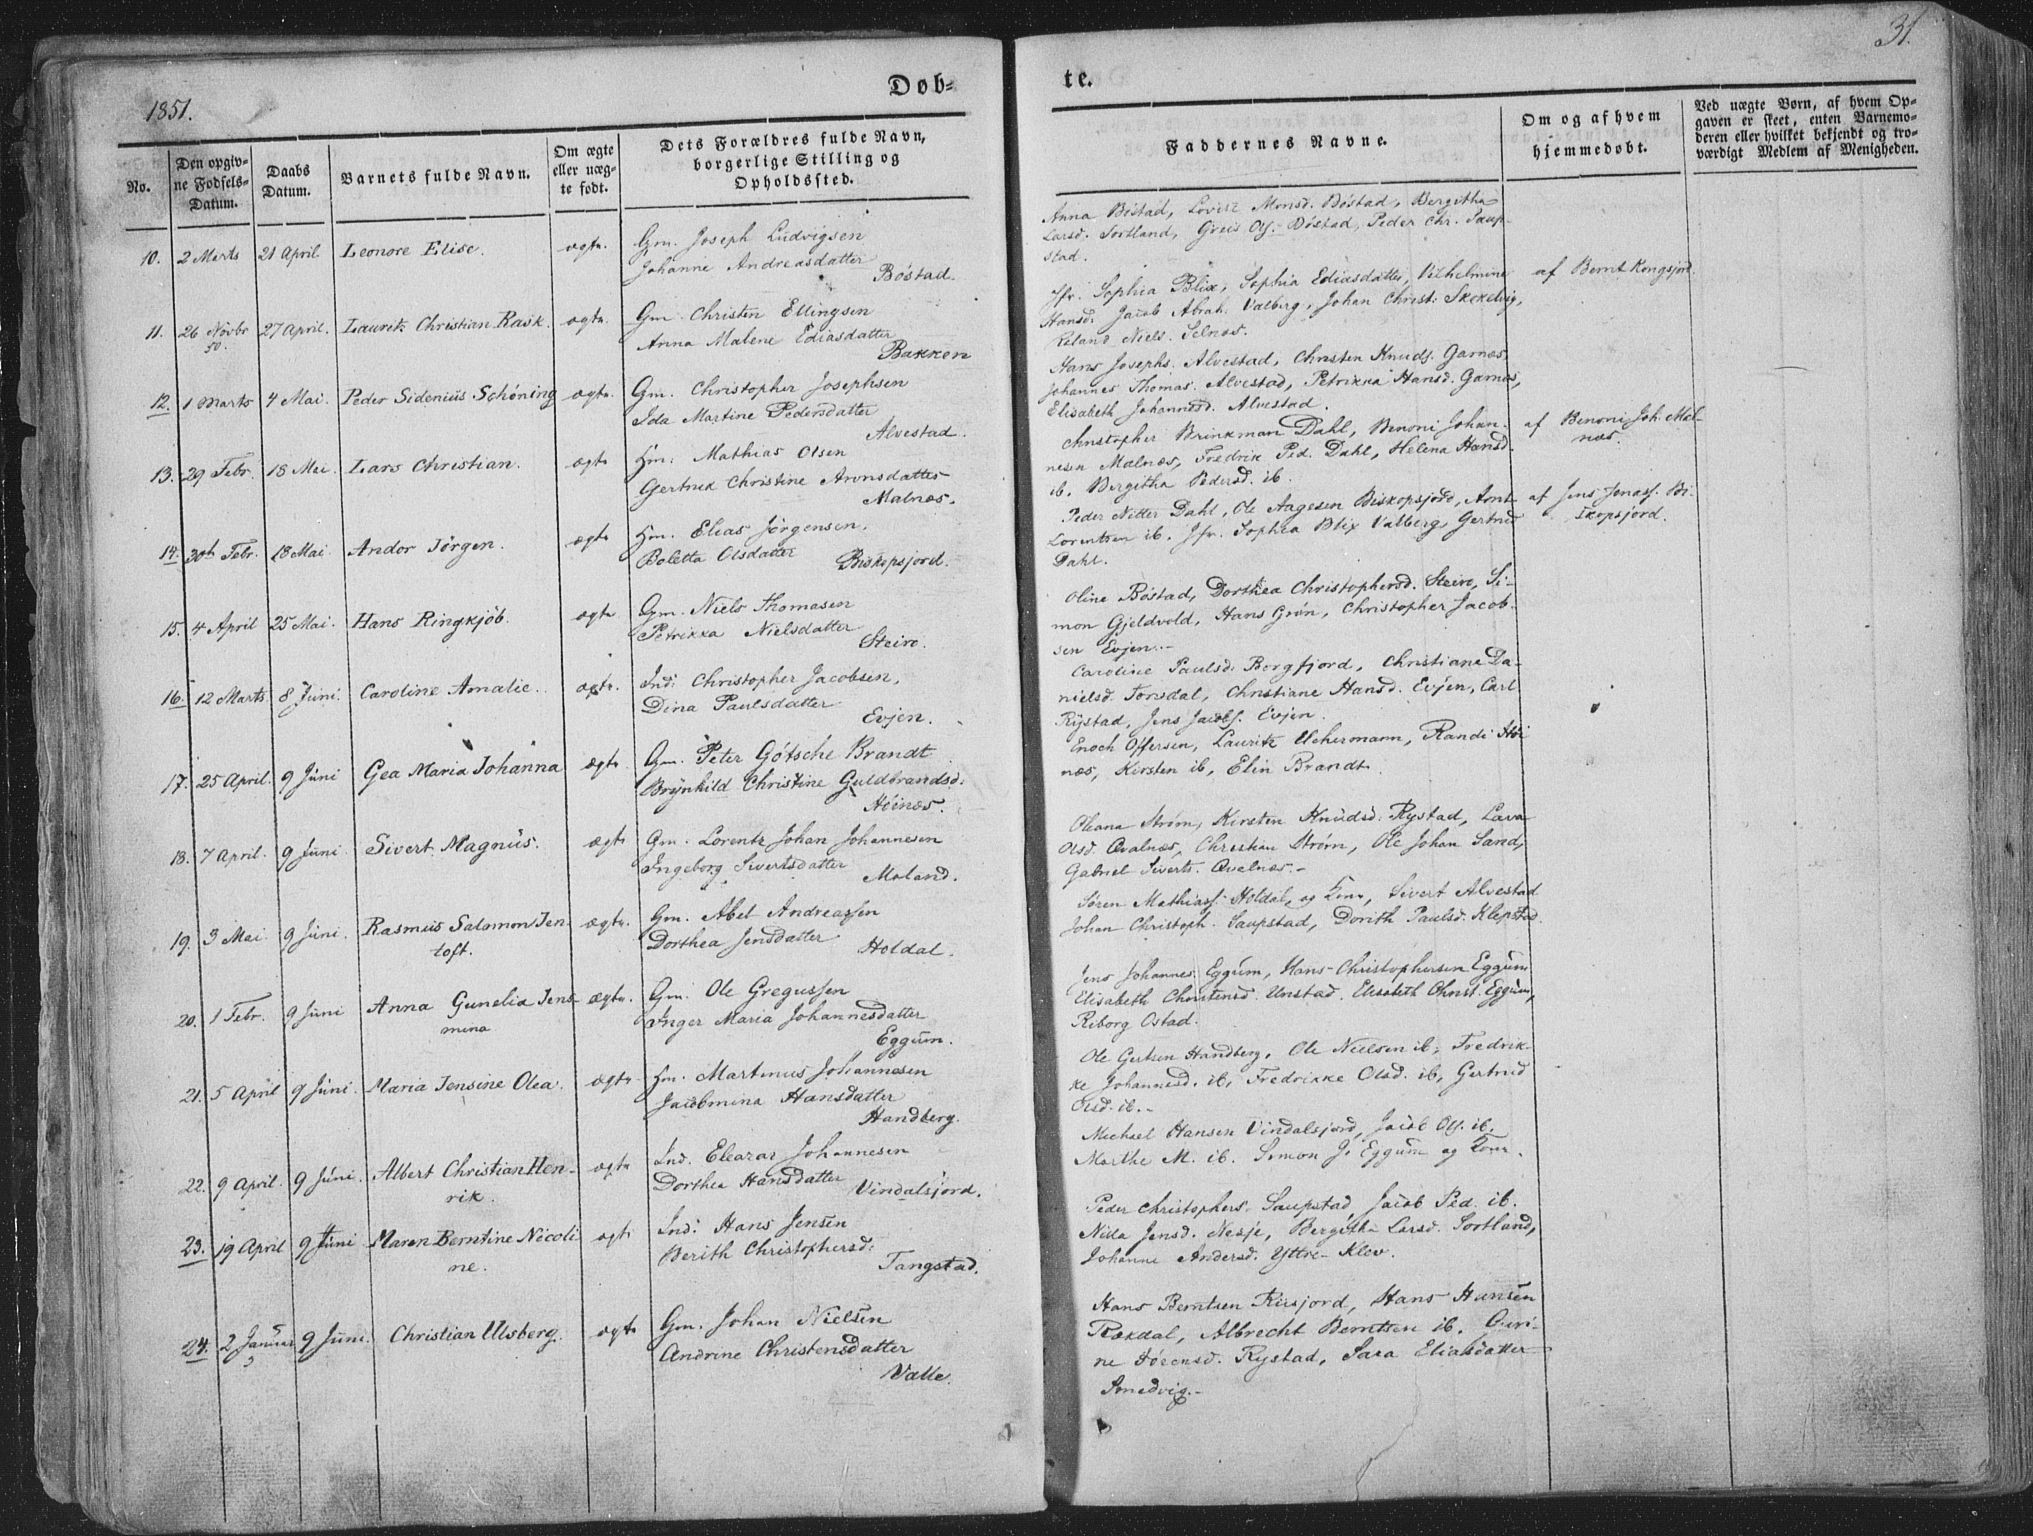 1851.
Døb-
No.
Den opgiv-
ne Fødsels-
Datum.
Daabs
Datum.
Barnets fulde Navn.
Om ægte
eller uæg-
te født.
Dets Forældres fulde Navn,
borgerlige Stilling og
Opholdssted.
10. 2 Marts 21 April Leonore Elise. ægte. Gm. Joseph Ludvigsen
Johanne Andreasdatter
Bøstad.
11. 26 Novbr 27 April. Lauritz Christian Rask. ægte. Gm. Christen Ellingsen
50.
Anna Malene Ediasdatter
Bakken
12. 1 Marts 4 Mai. Peder Sidenius Schöning ægte. Gm. Christopher Josephsen
Ida Martine Pedersdatter
Alvestad.
13. 29 Febr. 18 Mai Lars Christian. ægte Hm. Mathias Olsen
Gertrud Christine Arонsdatter
Malnæs.
14. 30te Febr. 18 Mai Andor Jörgen. ægte Hm. Elias Jörgensen,
Boletta Olsdatter
Biskopsjord.
15. 4 April 25 Mai. Hans Ringkjöb. ægte Gm. Niels Thomasen
Petrikka Nielsdatter
Steiro.
16. 12 Marts 8 Juni. Caroline Amalie. ægte. Ind: Christopher Jacobsen,
Dina Paulsdatter
Evjen.
17. 25 April. 9 Juni Gea Maria Johanna ægte. Gm. Peter Götsche Brandt
Brynhild Christine Guldbrandsd:
Höinæs.
18. 7 April. 9 Juni Sivert Magnus. ægte Gm. Lorentz Johan Johannesen
Ingeborg Sivertsdatter
Moland.
19. 3 Mai 9 Juni. Rasmus Salomon Jen- ægte. Gm. Abel Andreassen
toft.
Dorthea Jensdatter
Holdal.
20. 1 Febr. 9 Juni Anna Gunelia Jens- ægte. Gm. Ole Gregussen
mina
Inger Maria Johannesdatter
Eggum.
21. 5 April 9 Juni. Maria Jensine Olea. ægte Hm. Martinus Johannesen
Jacobmina Hansdatter
Handberg.
22. 9 April. 9 Juni. Albert Christian Hen- ægte Ind. Eleazar Johannesen
rik.
Dorthea Hansdatter
Vindalsjord.
23. 19 April 9 Juni Maren Berntine Nicoli ægte Ind: Hans Jensen
ne.
Berith Christophersd:
Tangstad.
24. 2 Januar 9 Juni. Christian Ulsberg. ægte Gm. Johan Nielsen
Andrine Christensdatter
Valle.
31.
te.
Faddernes Navne.
Om og af hvem
hjemmedøbt.
Ved uægte Børn, af hvem Op-
gaven er skeet, enten Barnemo-
deren eller hvilket bekjendt og tro-
værdigt Medlem af Menigheden.
Anna Böstad, Lovise Monsd. Böstad, Bergitha
Larsd. Sortland, Greis Ols. Böstad, Peder Chr. Saup-
stad.
Jfr. Sophia Blix, Sophia Ediasdatter, Vilhelmine
af Bernt Kongsjord.
Hansd: Jacob Abrah. Valberg, Johan Christ:
Niels. Selnæs.
Hans Josephs. Alvestad, Christen Knuds. Garnæs,
Johannes Thomas. Alvestad, Petrikka Hansd. Garnæs,
Elisabeth Johannesd. Alvestad.
Christopher Brinkman Dahl, Benoni Johan- af Benoni Joh. Mal-
næs.
nesen Malnæs, Fredrik Ped. Dahl, Helena Hansd.
ib. Bergitha Pedersd. ib.
Peder Nitter Dahl, Ole Aagesen Biskopsjord, Arnt af Jens Jonass. Bi-
skopsjord.
Lorentsen ib. Jfr. Sophia Blix Valberg, Gertrud
Dahl.
Oline Böstad, Dorthea Christophersd. Steiro, Si-
mon Gjeldvold, Hans Grön, Christopher Jacob-
sen Evjen.
Caroline Paulsd: Borgfjord, Christiane Da-
nielsd. Torsdal, Christiane Hansd. Evjen, Carl
Rystad, Jens Jacobs. Evjen.
Enoch Offersen, Lauritz Uchermann, Randi Höi
næs, Kirsten ib, Elin Brandt.
Oleana Ström, Kirsten Knudsd: Rystad, Lava
Olsd. Qvalnæs, Christian Ström, Ole Johan Sand,
Gabriel Siverts. Qvalnæs.
Sören Mathiass. Holdal, og Kone, Sivert Alvestad
Johan Christoph. Saupstad, Dorith Paulsd. Klepstad.
Jens Johannes: Eggum, Hans Christophersen Eggum
Elisabeth Christensd. Unstad. Elisabeth Christ. Eggum,
Reborg Ostad.
Ole Gertsen Handberg, Ole Nielsen ib, Fredrik-
ke Johannesd. ib, Fredrikke Olsd. ib, Gertrud
Olsd. ib.
Michael Hansen Vindalsjord, Jacob Ols. ib.
Marthe M. ib. Simon J. Eggum og Kone.
Peder Christophers. Saupstad Jacob Ped. ib.
Nilla Jensd. Nesje, Bergitha Larsd. Sortland,
Johanne Andersd. Yttre-Klev.
Hans Berntsen Risjord, Hans Hansen
Rækdal, Albrecht Berntsen ib. Guri-
ne Sörensd. Rystad, Sara Eliasdatter
Smedvig.